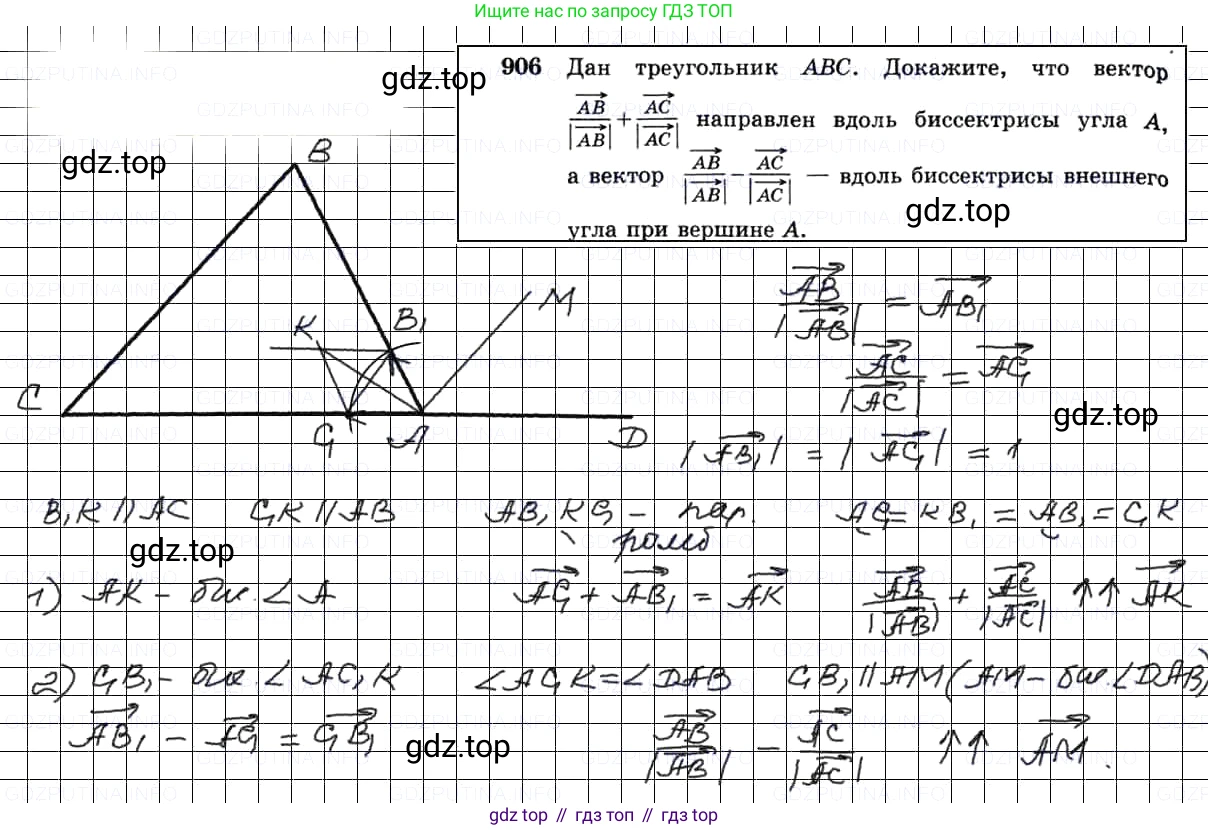 Ищите нас по запросу ГДЗ ТОП
906 Дан треугольник ABC. Докажите, что вектор
AB/|AB| + AC/|AC| направлен вдоль биссектрисы угла A,
а вектор AB/|AB| − AC/|AC| — вдоль биссектрисы внешнего
угла при вершине A.
gdz.top
gdz.top
gdz.top
B
K
B₁
M
C
C₁
A
D
AB/|AB| = AB₁
AC/|AC| = AC₁
gdz.top
|AB₁| = |AC₁| = 1
B₁K || AC C₁K || AB AB₁KC₁ – пар. AC₁ = KB₁ = AB₁ = C₁K
ромб
gdz.top
1) AK – бис. ∠A AC₁ + AB₁ = AK AB/|AB| + AC/|AC| ↑↑ AK
2) C₁B₁ – бис. ∠AC₁K ∠AC₁K = ∠DAB C₁B₁ || AM (AM – бис. ∠DAB)
AB₁ – AC₁ = C₁B₁ AB/|AB| – AC/|AC| ↑↑ AM.
gdz.top
gdz топ // гдз топ // gdz top